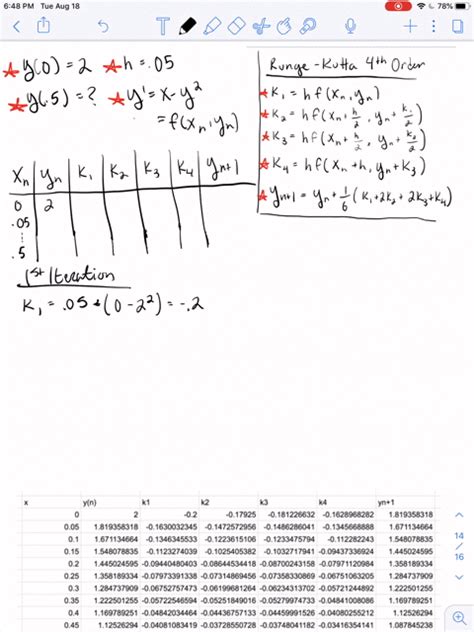 6:48 PM Tue Aug 18
78%
y(0) = 2 h = .05
y(.5) = ? y' = x - y²
= f(xn, yn)
Runge-Kutta 4th Order
K1 = h f(xn, yn)
K2 = h f(xn + h/2, yn + k1/2)
K3 = h f(xn + h/2, yn + k2/2)
K4 = h f(xn + h, yn + K3)
yn+1 = yn + 1/6 (K1 + 2K2 + 2K3 + K4)
xn yn K1 K2 K3 K4 yn+1
0 2
.05
:
.5
1st Iteration
K1 = .05 * (0 - 2²) = -.2
x y(n) k1 k2 k3 k4 yn+1
0 2 -0.2 -0.17925 -0.181226632 -0.1628968282 1.819358318
0.05 1.819358318 -0.1630032345 -0.1472572956 -0.1486286041 -0.1345668888 1.671134664
0.1 1.671134664 -0.1346345533 -0.1223615106 -0.1233475794 -0.112282243 1.548078835
0.15 1.548078835 -0.1123274039 -0.1025405382 -0.1032717941 -0.09437336924 1.445024595
0.2 1.445024595 -0.09440480403 -0.08644534418 -0.08700243158 -0.07971120984 1.358189334
0.25 1.358189334 -0.07973391338 -0.07314869456 -0.07358330869 -0.06751063205 1.284737909
0.3 1.284737909 -0.06752757473 -0.06199681264 -0.06234313702 -0.05721244892 1.222501255
0.35 1.222501255 -0.05722546594 -0.05251849016 -0.05279974733 -0.04841008086 1.169789251
0.4 1.169789251 -0.04842034464 -0.04436757133 -0.04459991526 -0.04080255212 1.12526294
0.45 1.12526294 -0.04081083419 -0.03728550728 -0.03748041182 -0.03416354141 1.087845238
14
/
16